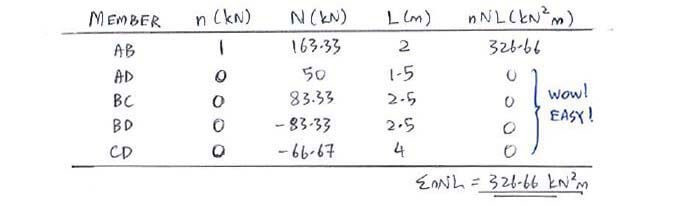 MEMBER n (kN) N (kN) L (m) nNL (kN²m)
AB 1 163.33 2 326.66
AD 0 50 1.5 0
BC 0 83.33 2.5 0
BD 0 -83.33 2.5 0
CD 0 -66.67 4 0
WOW!
EASY!
ΣnNL = 326.66 kN²m